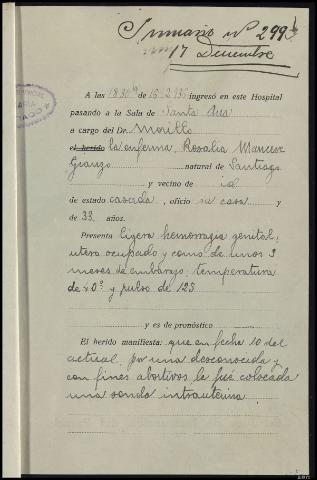 Sumario nº 299
17 Diciembre
A las 18'30 de 16-2-35 ingresó en este Hospital
pasando a la Sala de Santa Ana
a cargo del Dr. Morillo
el herido la enferma, Rosalia
natural de Santiago
y vecino de id
de estado casada, oficio su casa y
de 33 años.
Presenta ligera hemorragia genital,
utero ocupado y como de unos 3
meses de embarazo, temperatura
de 40º y pulso de 125
y es de pronóstico
El herido manifiesta: que en fecha 10 del
actual, por una desconocida y
con fines abortivos le fué colocada
una sonda intrauterina.